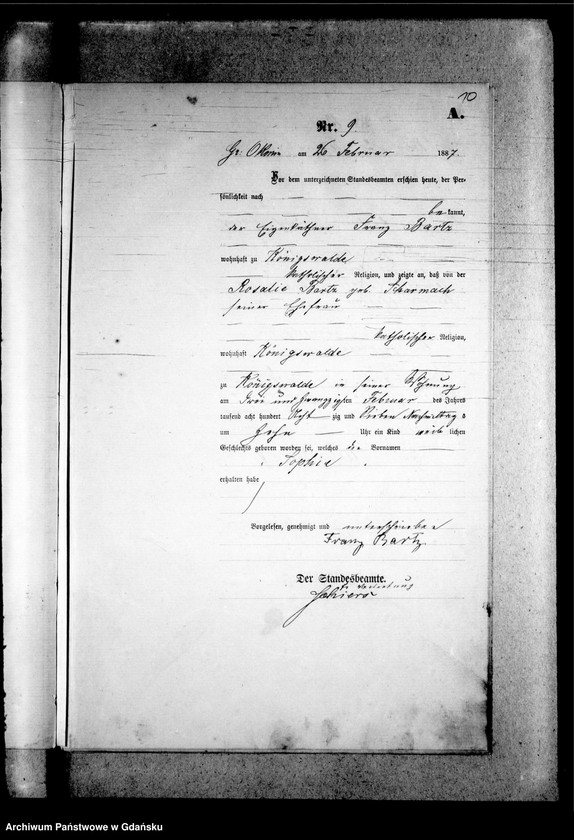 10
A.
Nr. 9
Gr. Okonin am 26 Februar 1887.
Vor dem unterzeichneten Standesbeamten erschien heute, der Per-
sönlichkeit nach
bekannt,
der Eigenkäthner Franz Bartz
wohnhaft zu Königswalde
katholischer Religion, und zeigte an, daß von der
Rosalie Bartz geb.
seiner Ehefrau
katholischer Religion,
wohnhaft Königswalde
zu Königswalde in seiner Wohnung
am Drei und zwanzigsten Februar des Jahres
tausend acht hundert Acht zig und Sieben Nachmittags
um Zehn Uhr ein Kind weib lichen
Geschlechts geboren worden sei, welches die Vornamen
Sophie
erhalten habe
Vorgelesen, genehmigt und unterschrieben
Franz Bartz
Der Standesbeamte.
In Vertretung
Archiwum Państwowe w Gdańsku